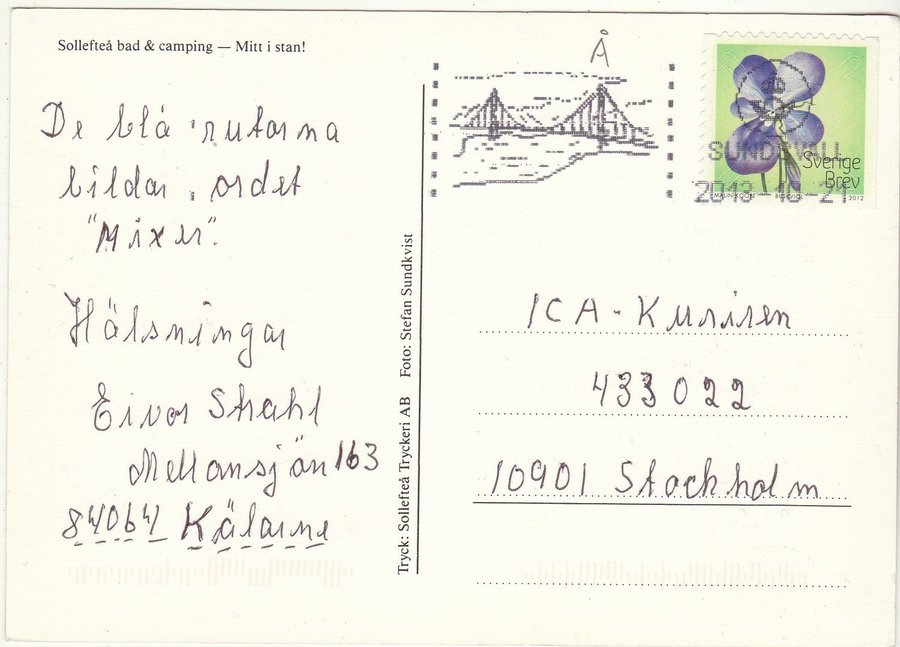 Sollefteå bad & camping — Mitt i stan!
De blå rutorna
bildar ordet
"Mixer".
Hälsningar
Eivor Strahl
Mellansjön 163
84064 Kälarne
Tryck: Sollefteå Tryckeri AB Foto: Stefan Sundkvist
Å
SUNDSVALL
2013-10-21
Sverige
Brev
2012
ICA-Kuriren
433022
10901 Stockholm